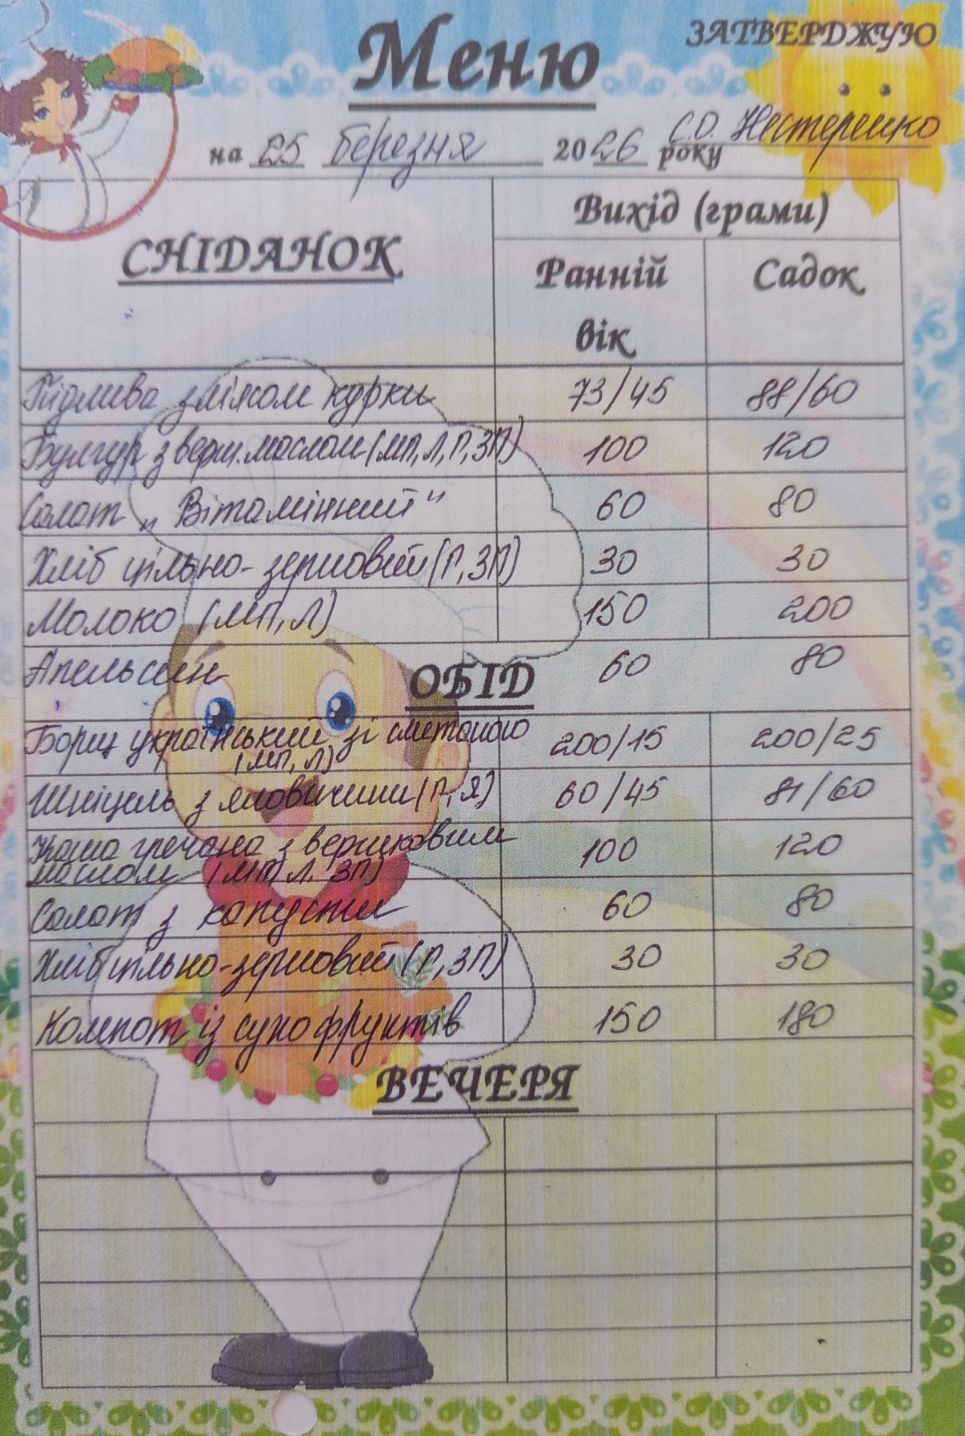 Меню
ЗАТВЕРДЖУЮ
С.О. Нестеренко
на 25 березня 2026 року
СНІДАНОК
Вихід (грами)
Ранній вік
Садок
Підлива з м'ясом курки 73/45 88/60
Булгур з верш. маслом (МП, Л, Г, ЗП) 100 120
Салат „Вітамінний" 60 80
Хліб цільно-зерновий (Г, ЗП) 30 30
Молоко (МП, Л) 150 200
Апельсин 60 80
ОБІД
Борщ український зі сметаною 200/15 200/25
(МП, Л)
Шніцель з яловичини (Г, Я) 60/45 81/60
Каша гречана з вершковим 100 120
маслом (МП Л. ЗП)
Салат з капусти 60 80
Хліб цільно-зерновий (Г, ЗП) 30 30
Компот із сухофруктів 150 180
ВЕЧЕРЯ